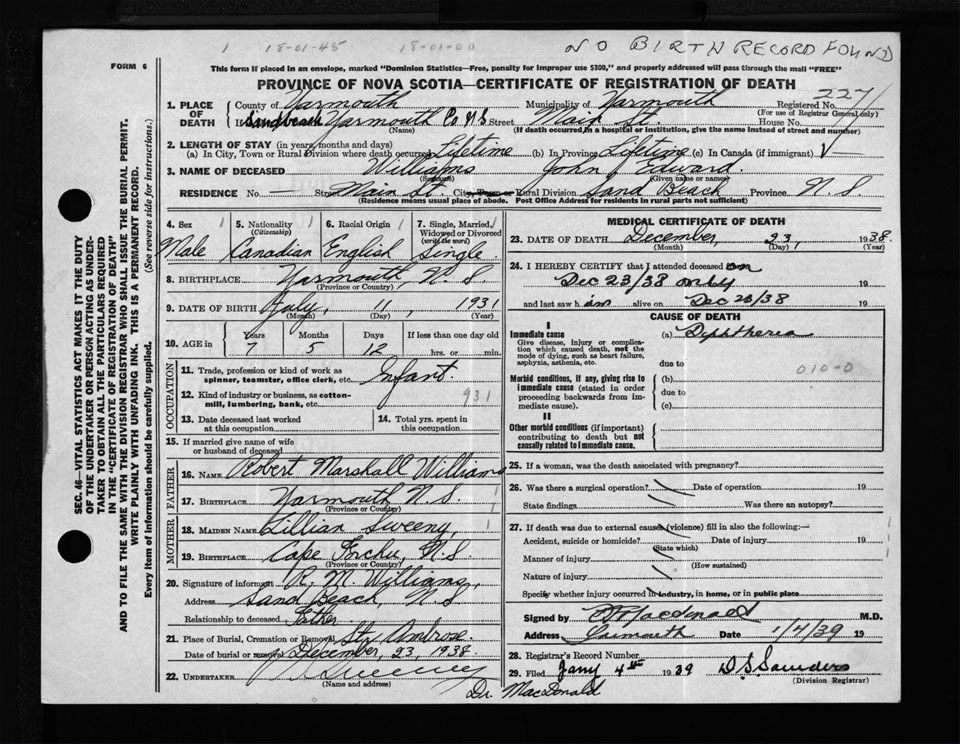 1 18-01-45 18-01-00 NO BIRTH RECORD FOUND
FORM 6
This form if placed in an envelope, marked "Dominion Statistics—Free, penalty for improper use $300," and properly addressed will pass through the mail "FREE"
PROVINCE OF NOVA SCOTIA—CERTIFICATE OF REGISTRATION OF DEATH
SEC. 46—VITAL STATISTICS ACT MAKES IT THE DUTY
OF THE UNDERTAKER OR PERSON ACTING AS UNDER-
TAKER TO OBTAIN ALL THE PARTICULARS REQUIRED
IN THE "CERTIFICATE OF REGISTRATION OF DEATH"
AND TO FILE THE SAME WITH THE DIVISION REGISTRAR WHO SHALL ISSUE THE BURIAL PERMIT.
WRITE PLAINLY WITH UNFADING INK. THIS IS A PERMANENT RECORD.
Every item of information should be carefully supplied. (See reverse side for instructions.)
1. PLACE OF DEATH
County of Yarmouth Municipality of Yarmouth Registered No. 2271
(For use of Registrar General only)
If Sandbeach Yarmouth Co N S Street Main St. House No.
(Name) (If death occurred in a hospital or institution, give the name instead of street and number)
2. LENGTH OF STAY (in years, months and days)
(a) In City, Town or Rural Division where death occurred Lifetime (b) In Province Lifetime (c) In Canada (if immigrant)
3. NAME OF DECEASED Williams John Edward.
(Surname) (Given name or names)
RESIDENCE No. — Street Main St. City, Town or Rural Division Sand Beach Province N. S
(Residence means usual place of abode. Post Office Address for residents in rural parts not sufficient)
4. Sex 5. Nationality 6. Racial Origin 7. Single, Married, Widowed or Divorced
(Citizenship) (write the word)
Male Canadian English Single.
8. BIRTHPLACE Yarmouth, N. S.
(Province or Country)
9. DATE OF BIRTH July, 1931
(Month) (Day) (Year)
10. AGE in Years Months Days If less than one day old
7 5 12 hrs. or min.
OCCUPATION
11. Trade, profession or kind of work as spinner, teamster, office clerk, etc. Infant.
12. Kind of industry or business, as cotton-mill, lumbering, bank, etc. 931
13. Date deceased last worked at this occupation
14. Total yrs. spent in this occupation
15. If married give name of wife or husband of deceased
FATHER
16. NAME Robert Marshall Williams
17. BIRTHPLACE Yarmouth N. S.
(Province or Country)
MOTHER
18. MAIDEN NAME Lillian Sweeny,
19. BIRTHPLACE Cape Forchu, N. S.
(Province or Country)
20. Signature of informant R. M. Williams,
Address Sand Beach, N S
Relationship to deceased Father
21. Place of Burial, Cremation or Removal Ste Ambrose.
Date of burial or removal December, 23, 1938.
22. UNDERTAKER Sweeney
(Name and address)
MEDICAL CERTIFICATE OF DEATH
23. DATE OF DEATH December, 23, 1938.
(Month) (Day) (Year)
24. I HEREBY CERTIFY that I attended deceased on
Dec 23/38 only 19
and last saw him alive on Dec 23/38 19
CAUSE OF DEATH
I
Immediate cause (a) Diphtheria
Give disease, injury or complication which caused death, not the mode of dying, such as heart failure, asphyxia, asthenia, etc.
due to 010-0
Morbid conditions, if any, giving rise to immediate cause (stated in order proceeding backwards from immediate cause).
(b)
due to
(c)
II
Other morbid conditions (if important) contributing to death but not causally related to immediate cause.
25. If a woman, was the death associated with pregnancy?
26. Was there a surgical operation? Date of operation 19
State findings Was there an autopsy?
27. If death was due to external causes (violence) fill in also the following:—
Accident, suicide or homicide? Date of injury 19
(State which)
Manner of injury
(How sustained)
Nature of injury
Specify whether injury occurred in industry, in home, or in public place
Signed by Macdonald M.D.
Address Yarmouth Date 1/4/39 19
28. Registrar's Record Number
29. Filed Jany 4th 1939 D. S. Saunders
(Division Registrar)
Dr. MacDonald